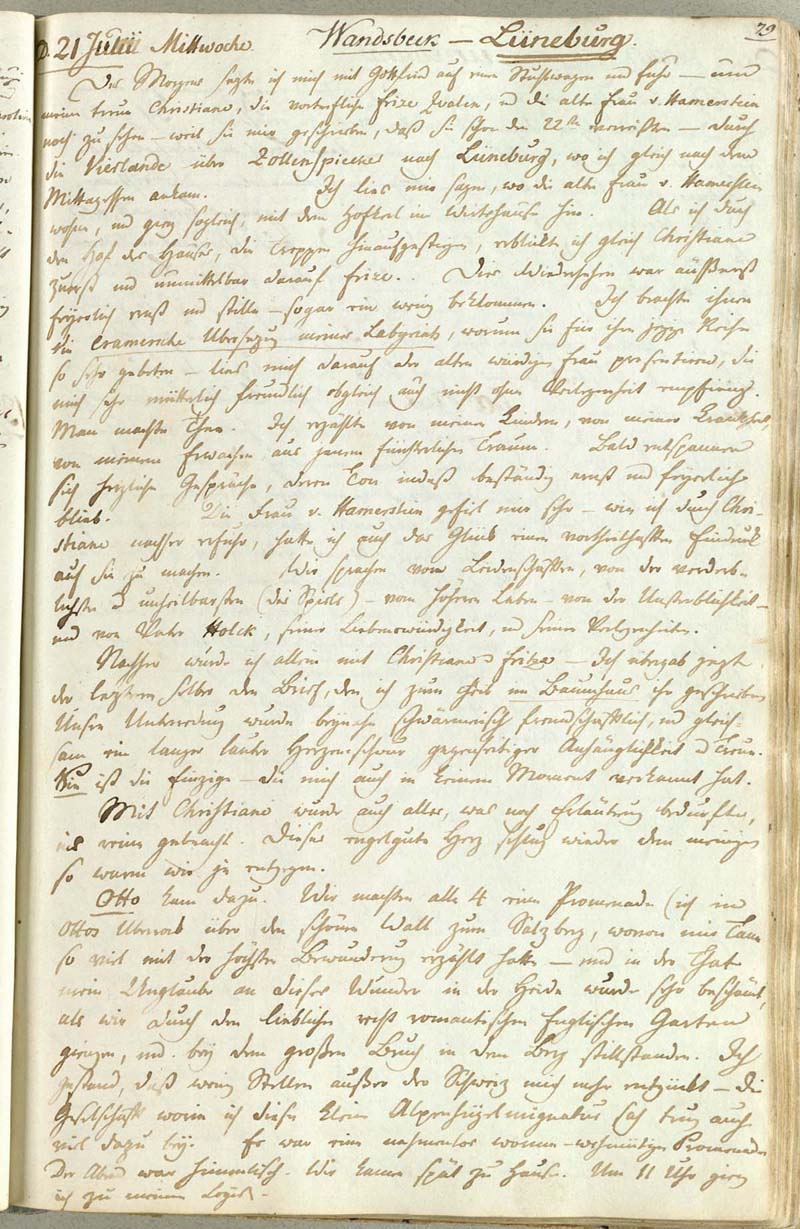 29
D. 21 Julii Mittwoche. Wandsbeck – Lüneburg.
Des Morgens setzte ich mich mit Gottfried auf einen Stuhlwagen und fuhr – um
meine treue Christiane, die vortrefliche Frize Qualen, und die alte Frau v. Hamerstein
noch zu sehen – weil sie mir geschrieben, daß sie schon den 22ten verreißten – durch
die Vierlande über Zollenspiecker nach Lüneburg, wo ich gleich nach dem
Mittagessen ankam. Ich lies mir sagen, wo die alte Frau v. Hamerstein
wohne, und ging sogleich, mit dem Hofkerl im Wirtshause hin. Als ich durch
den Hof des Hauses, die Treppen hinaufgestiegen, erblickte ich gleich Christiane
zuerst und unmittelbar darauf Frize. Dies Wiedersehen war äußerst
feyerlich ernst und stille – sogar ein wenig beklommen. Ich brachte ihnen
die Cramersche Ubersezung meines Labyrints, worum sie für ihre jezige Reise
so sehr gebeten – lies mich darauf der alten würdigen Frau presentiren, die
mich sehr mütterlich freundlich obgleich auch nicht ohne Verlegenheit empfing.
Man machte Thee. Ich erzählte von meinen Kindern, von meiner Krankheit,
von meinem Erwachen aus jenem fürchterlichen Traum. Bald entspannen
sich herzliche Gespräche, deren Ton indeß beständig ernst und feyerlich
blieb. Die Frau v. Hamerstein gefiel mir sehr – wie ich durch Chri-
stiane nachher erfuhr, hatte ich auch das Glück einen vortheilhaften Eindruck
auf sie zu machen. Wir sprachen vom Leidenschaften, von der verderb-
lichsten u unheilbarsten (des Spiels) – vom höheren Leben – von der Unsterblichkeit –
und von Vater Holck, seiner Liebenswürdigkeit, und seinen Verlegenheiten.
Nachher wurde ich allein mit Christiane u Frize – Ich übergab jezt
der leztern selbst den Brief, den ich zum Theil im Baumhaus ihr geschrieben
Unsre Unterredung wurde beynahe schwärmerisch freundschaftlich, und gleich-
sam ein langer lauter Herzensschwur gegenseitiger Anhänglichkeit u Treue.
Sie ist die Einzige – die mich auch in keinem Moment verkannt hat.
Mit Christiane wurde auch alles, was noch Erläutrung bedurfte,
ins reine gebracht. Dieses engelgute Herz schlug wieder dem meinigen
so warm wie je entgegen.
Otto kam dazu. Wir machten alle 4 eine Promenade (ich in
Ottos Uberrock über den schönen Wall zum Salzberg, wovon mir
so viel mit der höchsten Bewunderung erzählt hatte – und in der That
mein Unglaube an dieses Wunder in der Heide wurde sehr beschämt,
als wir durch den lieblichen recht romantischen Englischen Garten
giengen, und bey dem großen Bruch in dem Berg stillstanden. Ich
gestand, daß wenig Stellen außer der Schweiz mich mehr entzückt – die
Gesellschaft worin ich dieses kleine sah trug auch
viel dazu bey. Es war eine nahmenlos wonne-wehmütige Promenade
Der Abend war himmlisch. Wir kamen spät zu Hause. Um 11 Uhr gieng
ich zu meinem Logis.